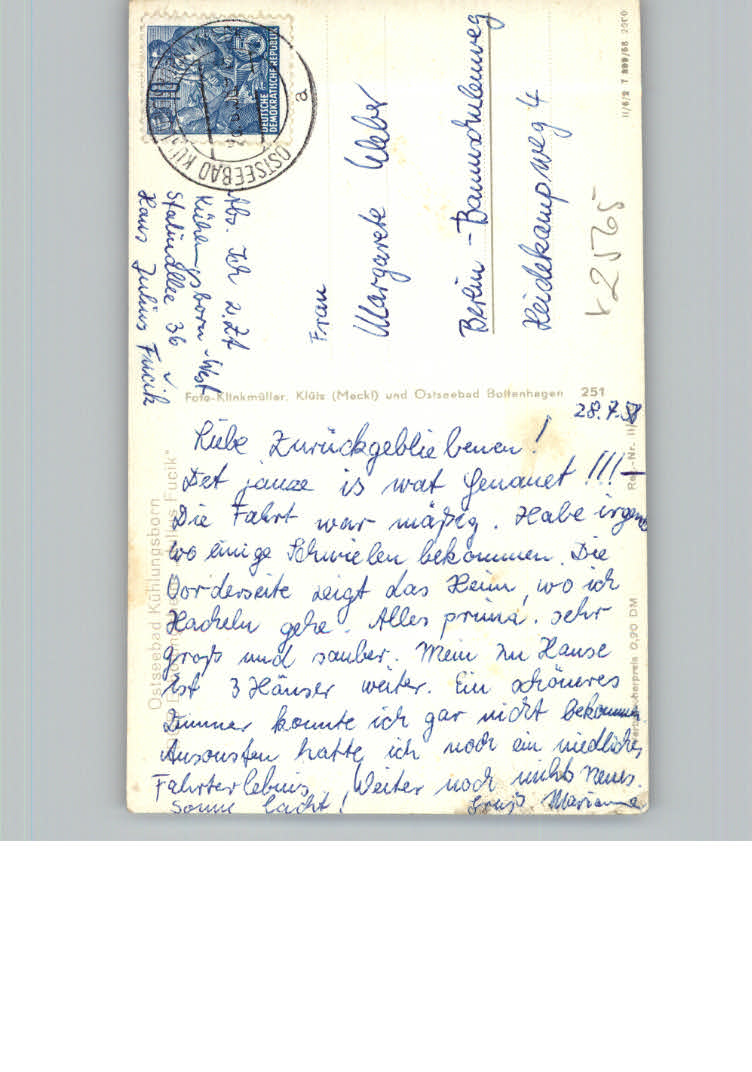 28.7.58
Liebe Zurückgebliebenen!
Det janze is wat Genauet!!!
Die Fahrt war mäßig. Habe irgend
wo einige Schwielen bekommen. Die
Vorderseite zeigt das Heim, wo ich
Kacheln gehe. Alles prima. sehr
groß und sauber. Mein zu Hause
ist 3 Häuser weiter. Ein schöneres
Zimmer konnte ich gar nicht bekommen
Ansonsten hatte ich noch ein niedliches
Fahrterlebnis. Weiter noch nichts Neues.
Sonne lacht! Gruß Marianne
Abs. Ich z.Zt
Kühlungsborn-West
Stalinallee 36 v
Haus Julius Fucik
Frau
Margarete Weber
Berlin-Baumschulenweg
Heidekampweg 4
Foto-Klinkmüller, Klütz (Meckl) und Ostseebad Boltenhagen 251
Ostseebad Kühlungsborn
Fucik"
Verbraucherpreis 0,20 DM
II/6/2 T 899/58 2000
DEUTSCHE
DEMOKRATISCHE REPUBLIK
10
OSTSEEBAD
a
v2565